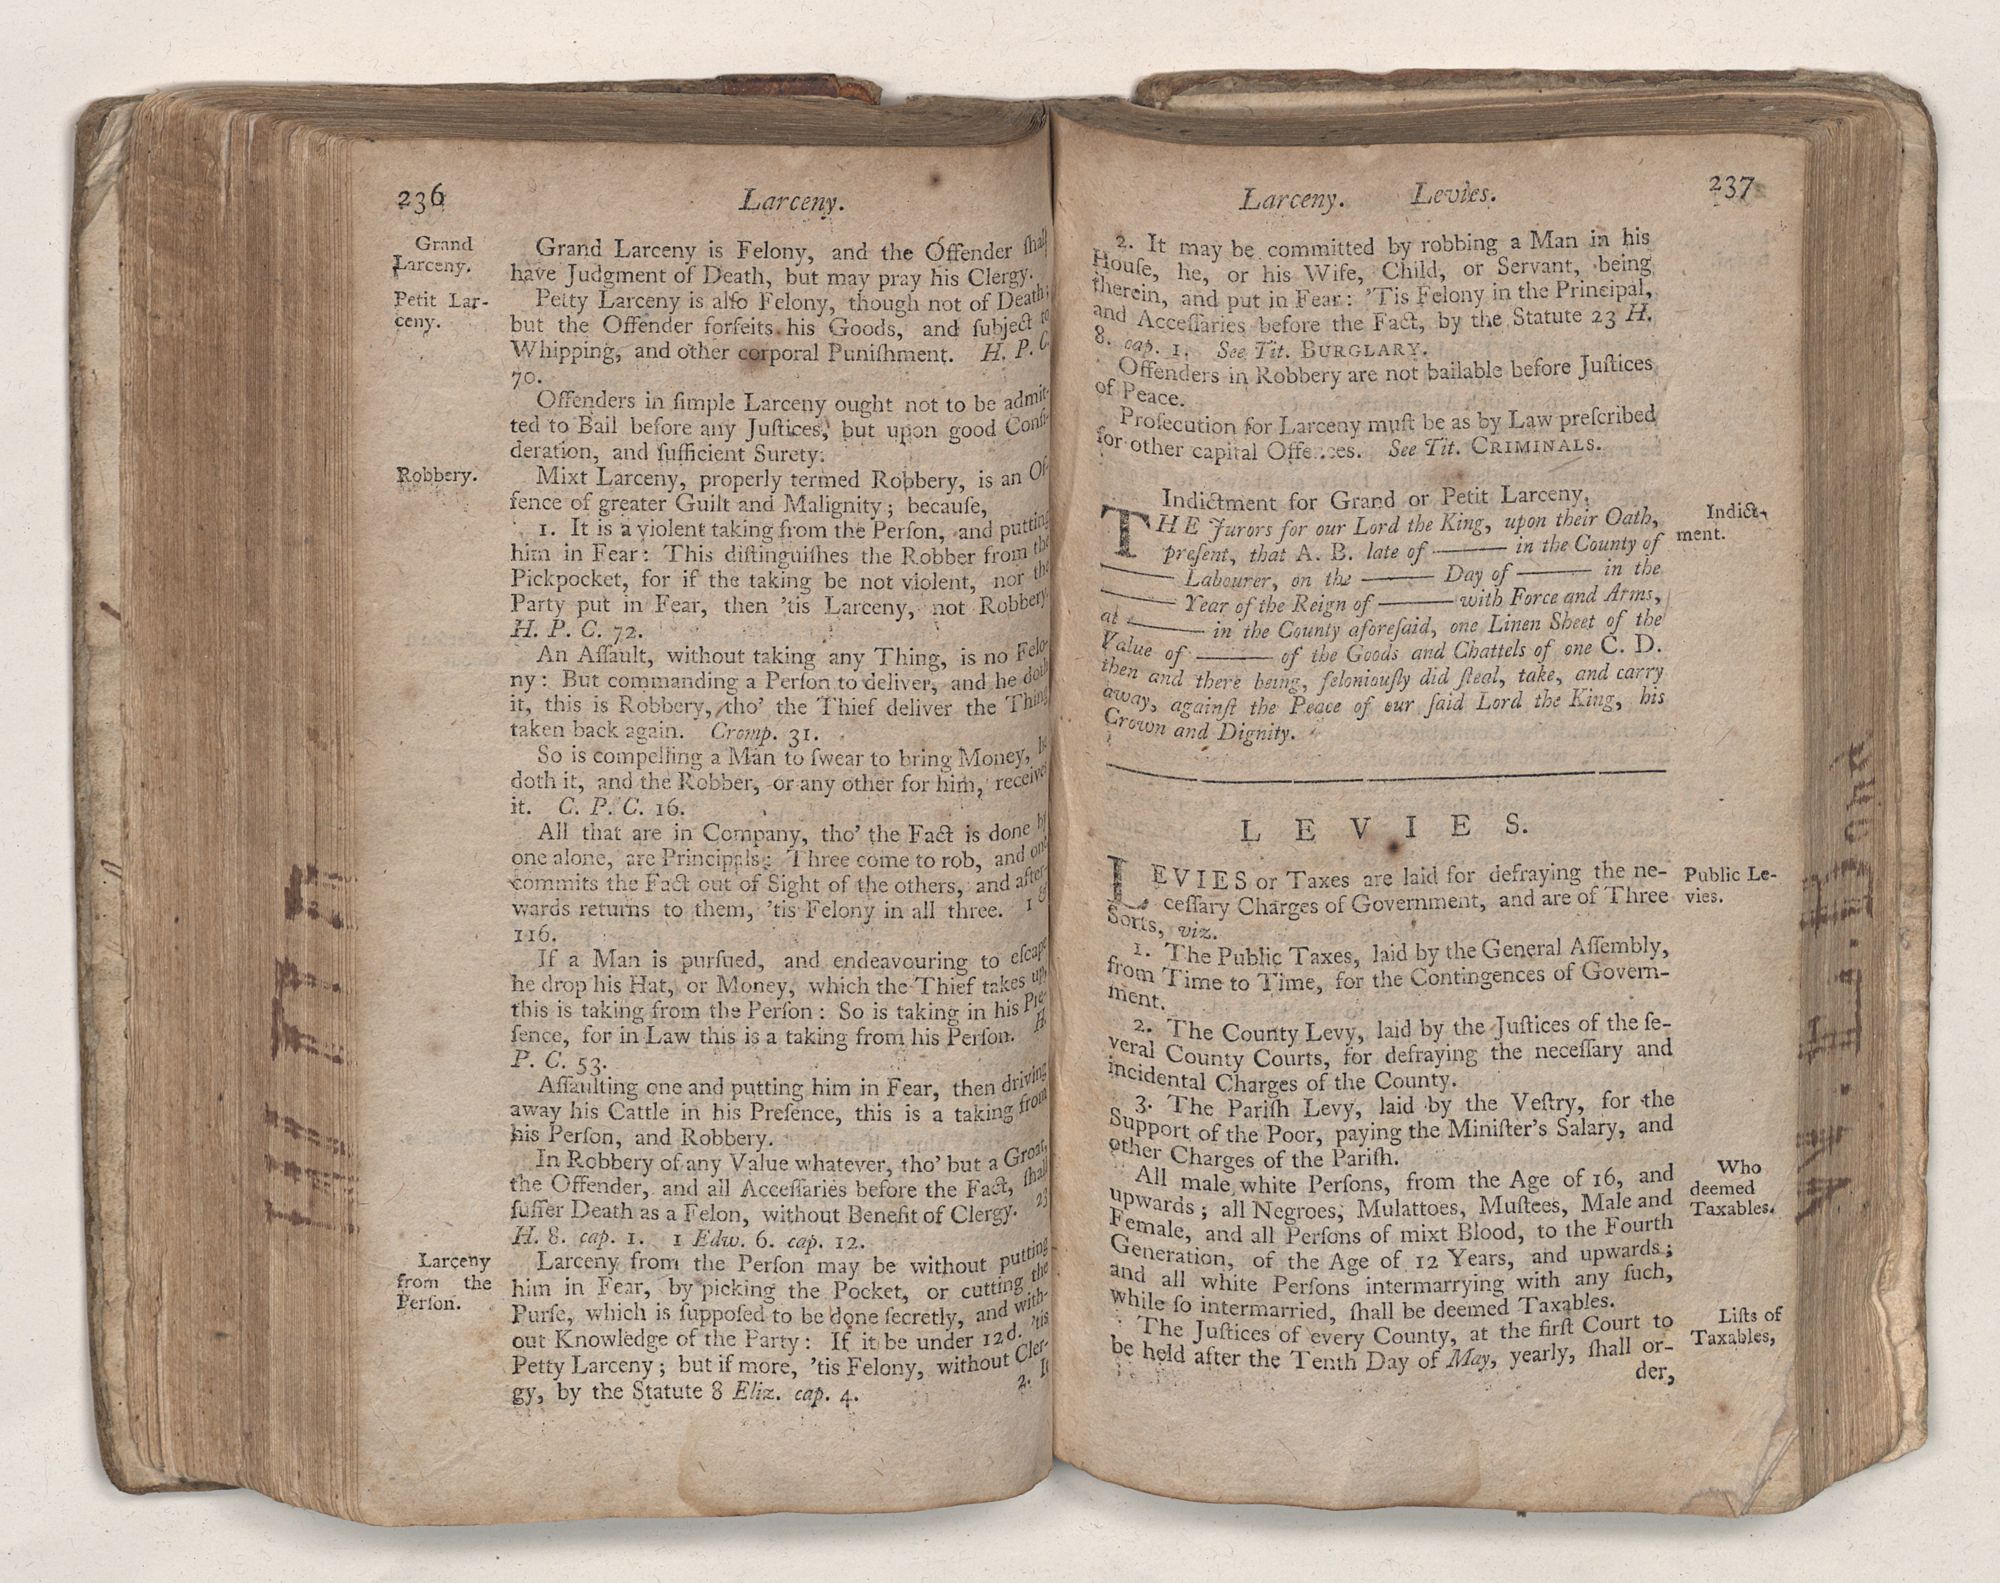 236
Larceny.
Grand
Larceny.
Grand Larceny is Felony, and the Offender ſhall
have Judgment of Death, but may pray his Clergy.
Petit Lar-
ceny.
Petty Larceny is alſo Felony, though not of Death;
but the Offender forfeits his Goods, and ſubject to
Whipping, and other corporal Puniſhment. H. P. C.
70.
Offenders in ſimple Larceny ought not to be admit-
ted to Bail before any Juſtices, but upon good Conſi-
deration, and ſufficient Surety.
Robbery.
Mixt Larceny, properly termed Robbery, is an Of-
fence of greater Guilt and Malignity; becauſe,
1. It is a violent taking from the Perſon, and putting
him in Fear: This diſtinguiſhes the Robber from the
Pickpocket, for if the taking be not violent, nor the
Party put in Fear, then 'tis Larceny, not Robbery.
H. P. C. 72.
An Aſſault, without taking any Thing, is no Felo-
ny: But commanding a Perſon to deliver, and he doth
it, this is Robbery, tho' the Thief deliver the Thing
taken back again. Cromp. 31.
So is compelling a Man to ſwear to bring Money, he
doth it, and the Robber, or any other for him, receives
it. C. P. C. 16.
All that are in Company, tho' the Fact is done by
one alone, are Principals: Three come to rob, and one
commits the Fact out of Sight of the others, and after-
wards returns to them, 'tis Felony in all three. 1
116.
If a Man is purſued, and endeavouring to eſcape
he drop his Hat, or Money, which the Thief takes up,
this is taking from the Perſon: So is taking in his Pre-
ſence, for in Law this is a taking from his Perſon. H.
P. C. 53.
Aſſaulting one and putting him in Fear, then driving
away his Cattle in his Preſence, this is a taking from
his Perſon, and Robbery.
In Robbery of any Value whatever, tho' but a Groat,
the Offender, and all Acceſſaries before the Fact, ſhall
ſuffer Death as a Felon, without Benefit of Clergy. 23
H. 8. cap. 1. 1 Edw. 6. cap. 12.
Larceny
from the
Perſon.
Larceny from the Perſon may be without putting
him in Fear, by picking the Pocket, or cutting the
Purſe, which is ſuppoſed to be done ſecretly, and with-
out Knowledge of the Party: If it be under 12d. 'tis
Petty Larceny; but if more, 'tis Felony, without Cler-
gy, by the Statute 8 Eliz. cap. 4.
2. It
Larceny. Levies.
237
2. It may be committed by robbing a Man in his
Houſe, he, or his Wife, Child, or Servant, being
therein, and put in Fear: 'Tis Felony in the Principal,
and Acceſſaries before the Fact, by the Statute 23 H.
8. cap. 1. See Tit. BURGLARY.
Offenders in Robbery are not bailable before Juſtices
of Peace.
Proſecution for Larceny muſt be as by Law preſcribed
for other capital Offences. See Tit. CRIMINALS.
Indictment for Grand or Petit Larceny.
Indict-
ment.
THE Jurors for our Lord the King, upon their Oath,
preſent, that A. B. late of —— in the County of
—— Labourer, on the —— Day of —— in the
—— Year of the Reign of —— with Force and Arms,
at —— in the County aforeſaid, one Linen Sheet of the
Value of —— of the Goods and Chattels of one C. D.
then and there being, feloniouſly did ſteal, take, and carry
away, againſt the Peace of our ſaid Lord the King, his
Crown and Dignity.
LEVIES.
LEVIES or Taxes are laid for defraying the ne-
ceſſary Charges of Government, and are of Three
Sorts, viz.
Public Le-
vies.
1. The Public Taxes, laid by the General Aſſembly,
from Time to Time, for the Contingences of Govern-
ment.
2. The County Levy, laid by the Juſtices of the ſe-
veral County Courts, for defraying the neceſſary and
incidental Charges of the County.
3. The Pariſh Levy, laid by the Veſtry, for the
Support of the Poor, paying the Miniſter's Salary, and
other Charges of the Pariſh.
Who
deemed
Taxables.
All male white Perſons, from the Age of 16, and
upwards; all Negroes, Mulattoes, Muſtees, Male and
Female, and all Perſons of mixt Blood, to the Fourth
Generation, of the Age of 12 Years, and upwards;
and all white Perſons intermarrying with any ſuch,
while ſo intermarried, ſhall be deemed Taxables.
Liſts of
Taxables,
The Juſtices of every County, at the firſt Court to
be held after the Tenth Day of May, yearly, ſhall or-
der,